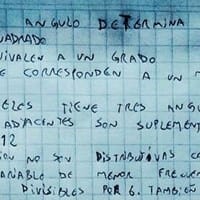 ANGULO DETERMINA
UADRADO
UIVALEN A UN GRADO
E CORRESPONDEN A UN M
ELES TIENE TRES ANGU
ADJACENTES SON SUPLEMENT
12
ION NO SON DISTRIBUTIVAS CO
ARIABLE DE MENOR FRECUEN
DIVISIBLES POR 6. TAMBIÉN